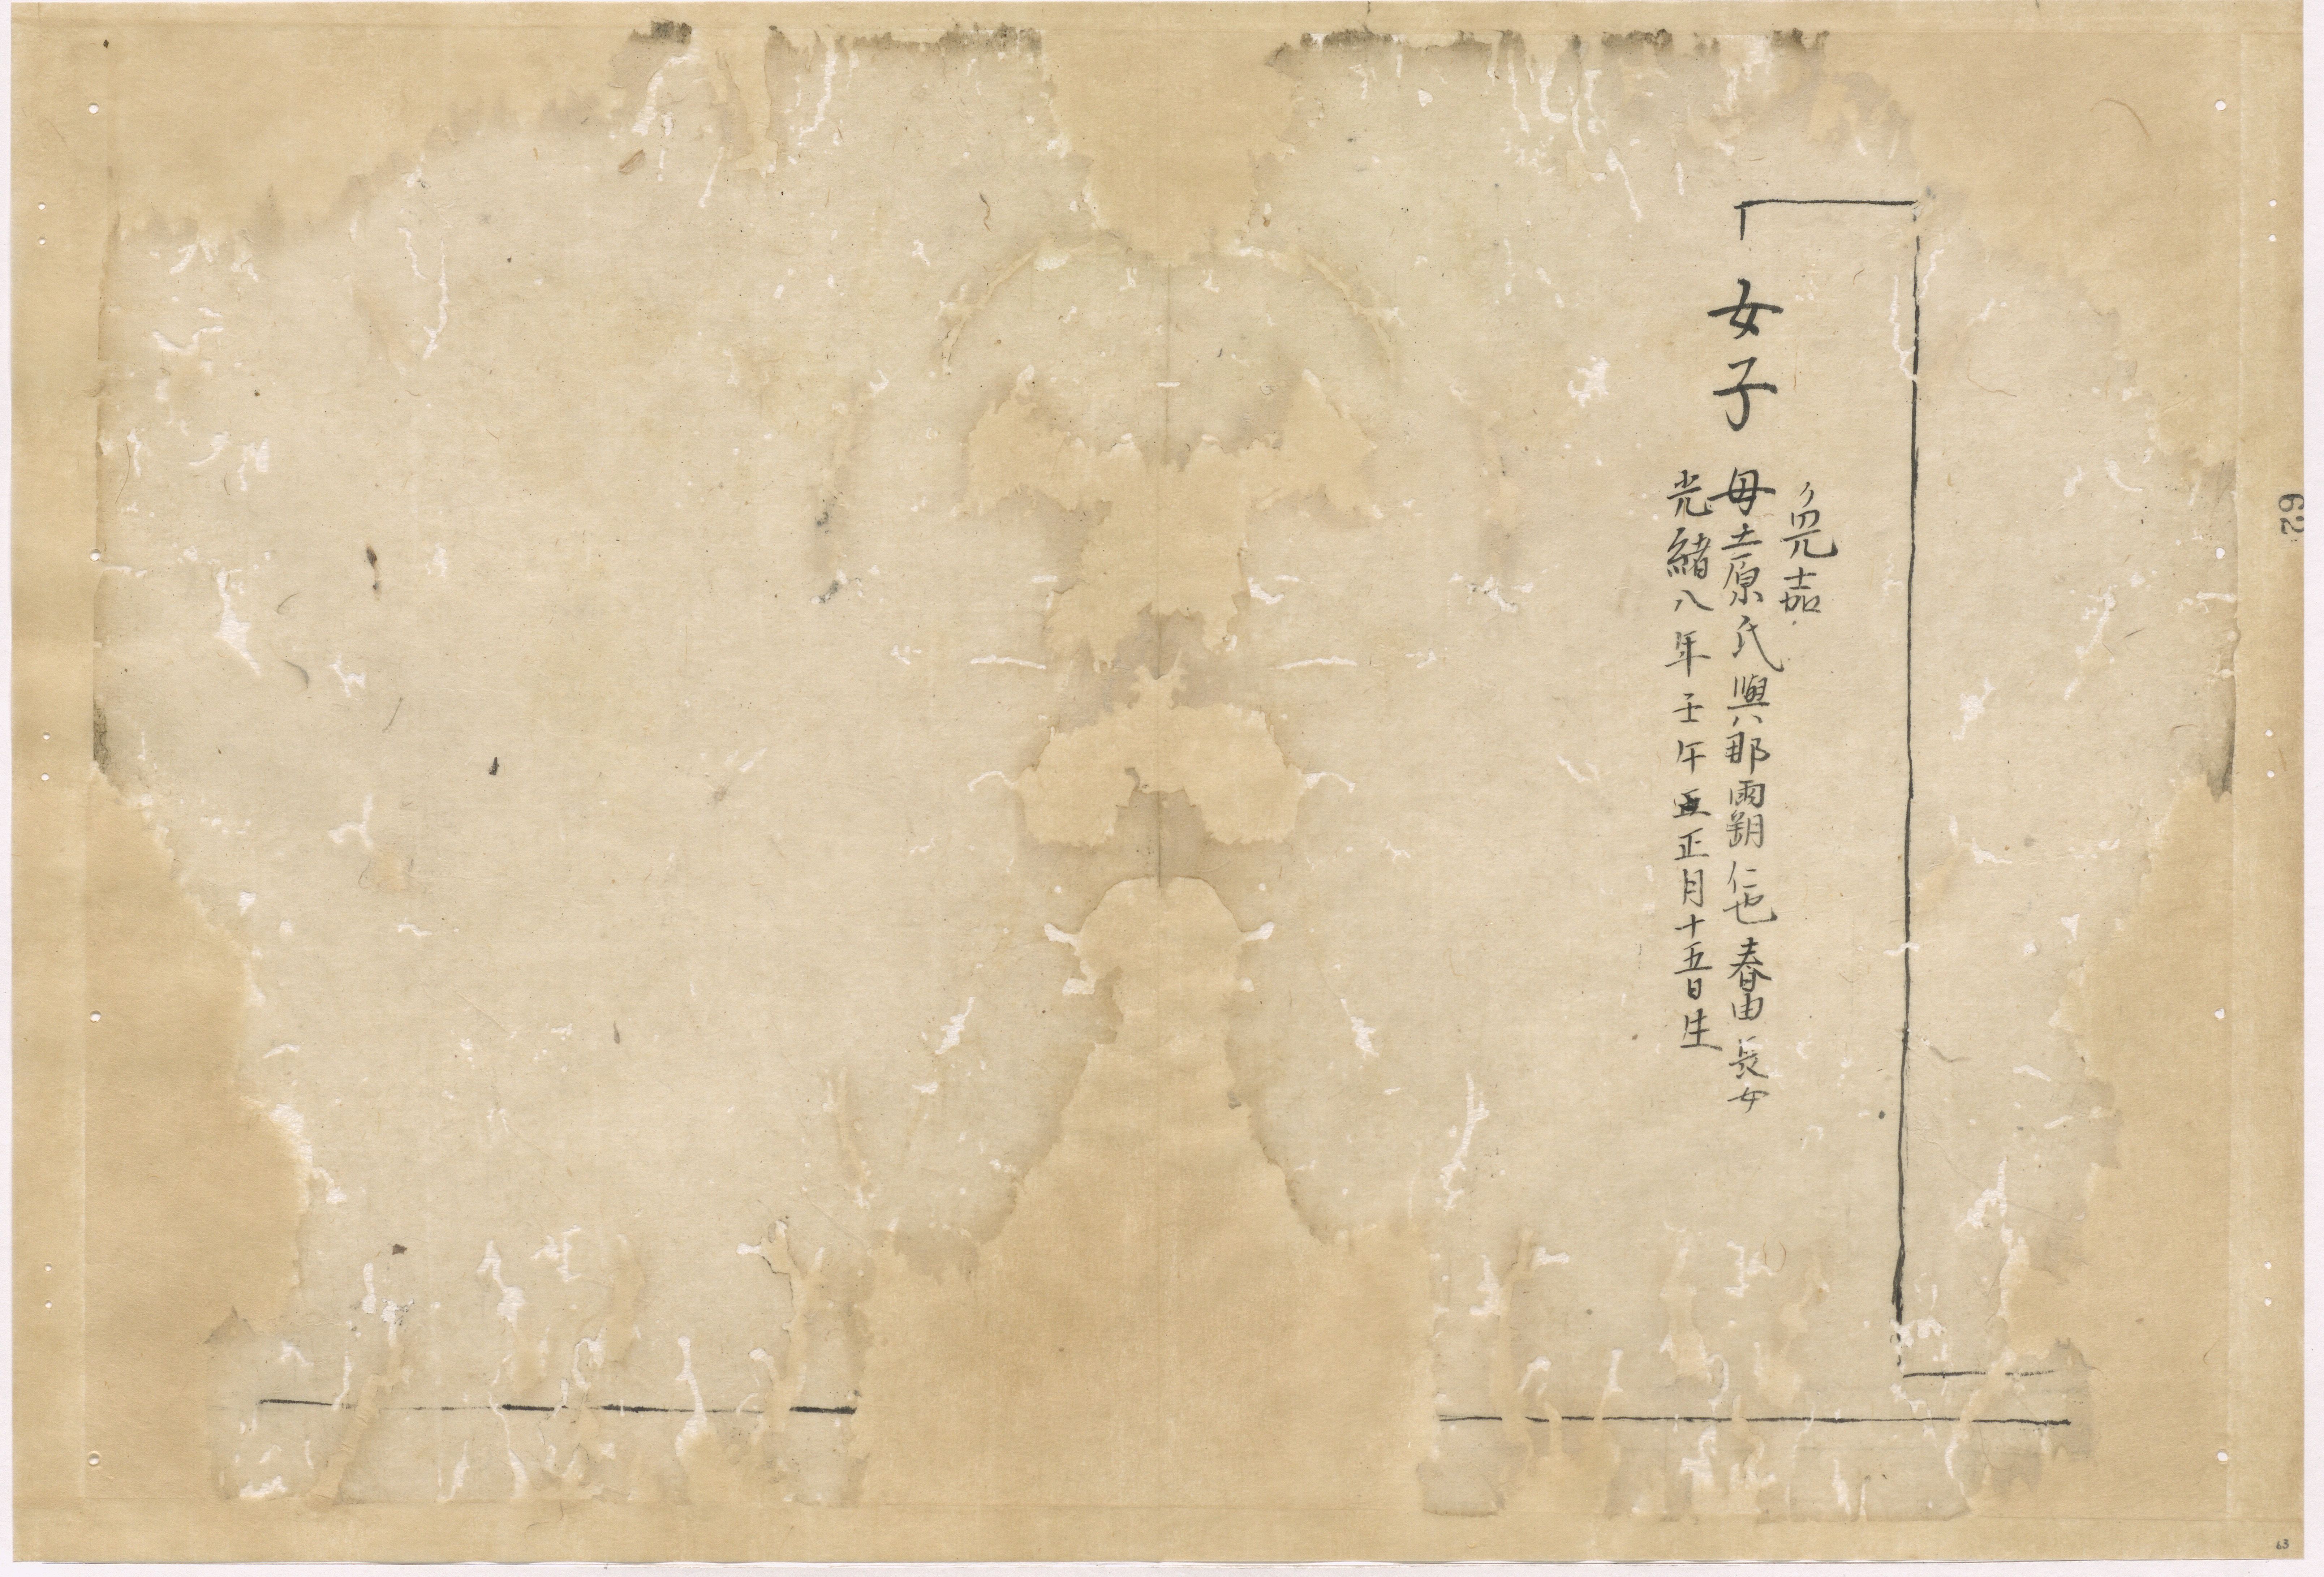 女子
免嘉
母土原氏與那覇仁也春由長女
光緒八年壬午正月十五日生
62
63